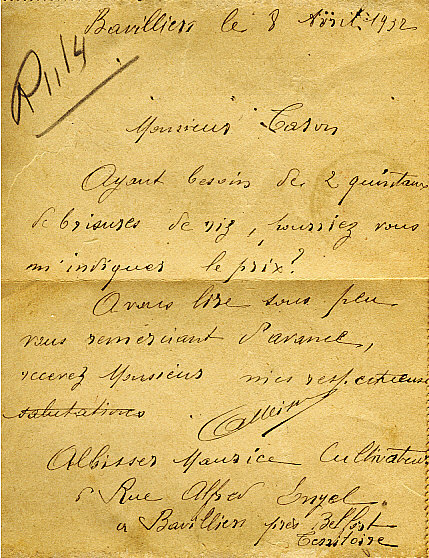 Bavilliers le 8 Avril 1932
Monsieur
Ayant besoin de 2 quintaux
de brisures de riz, pourriez vous
m'indiquer le prix?
A vous lire sous peu
vous remerciant d'avance,
recevez Monsieur mes respectueuses
salutations
Albisser Maurice Cultivateur
Rue Alfred Engel
à Bavilliers près Belfort
Territoire